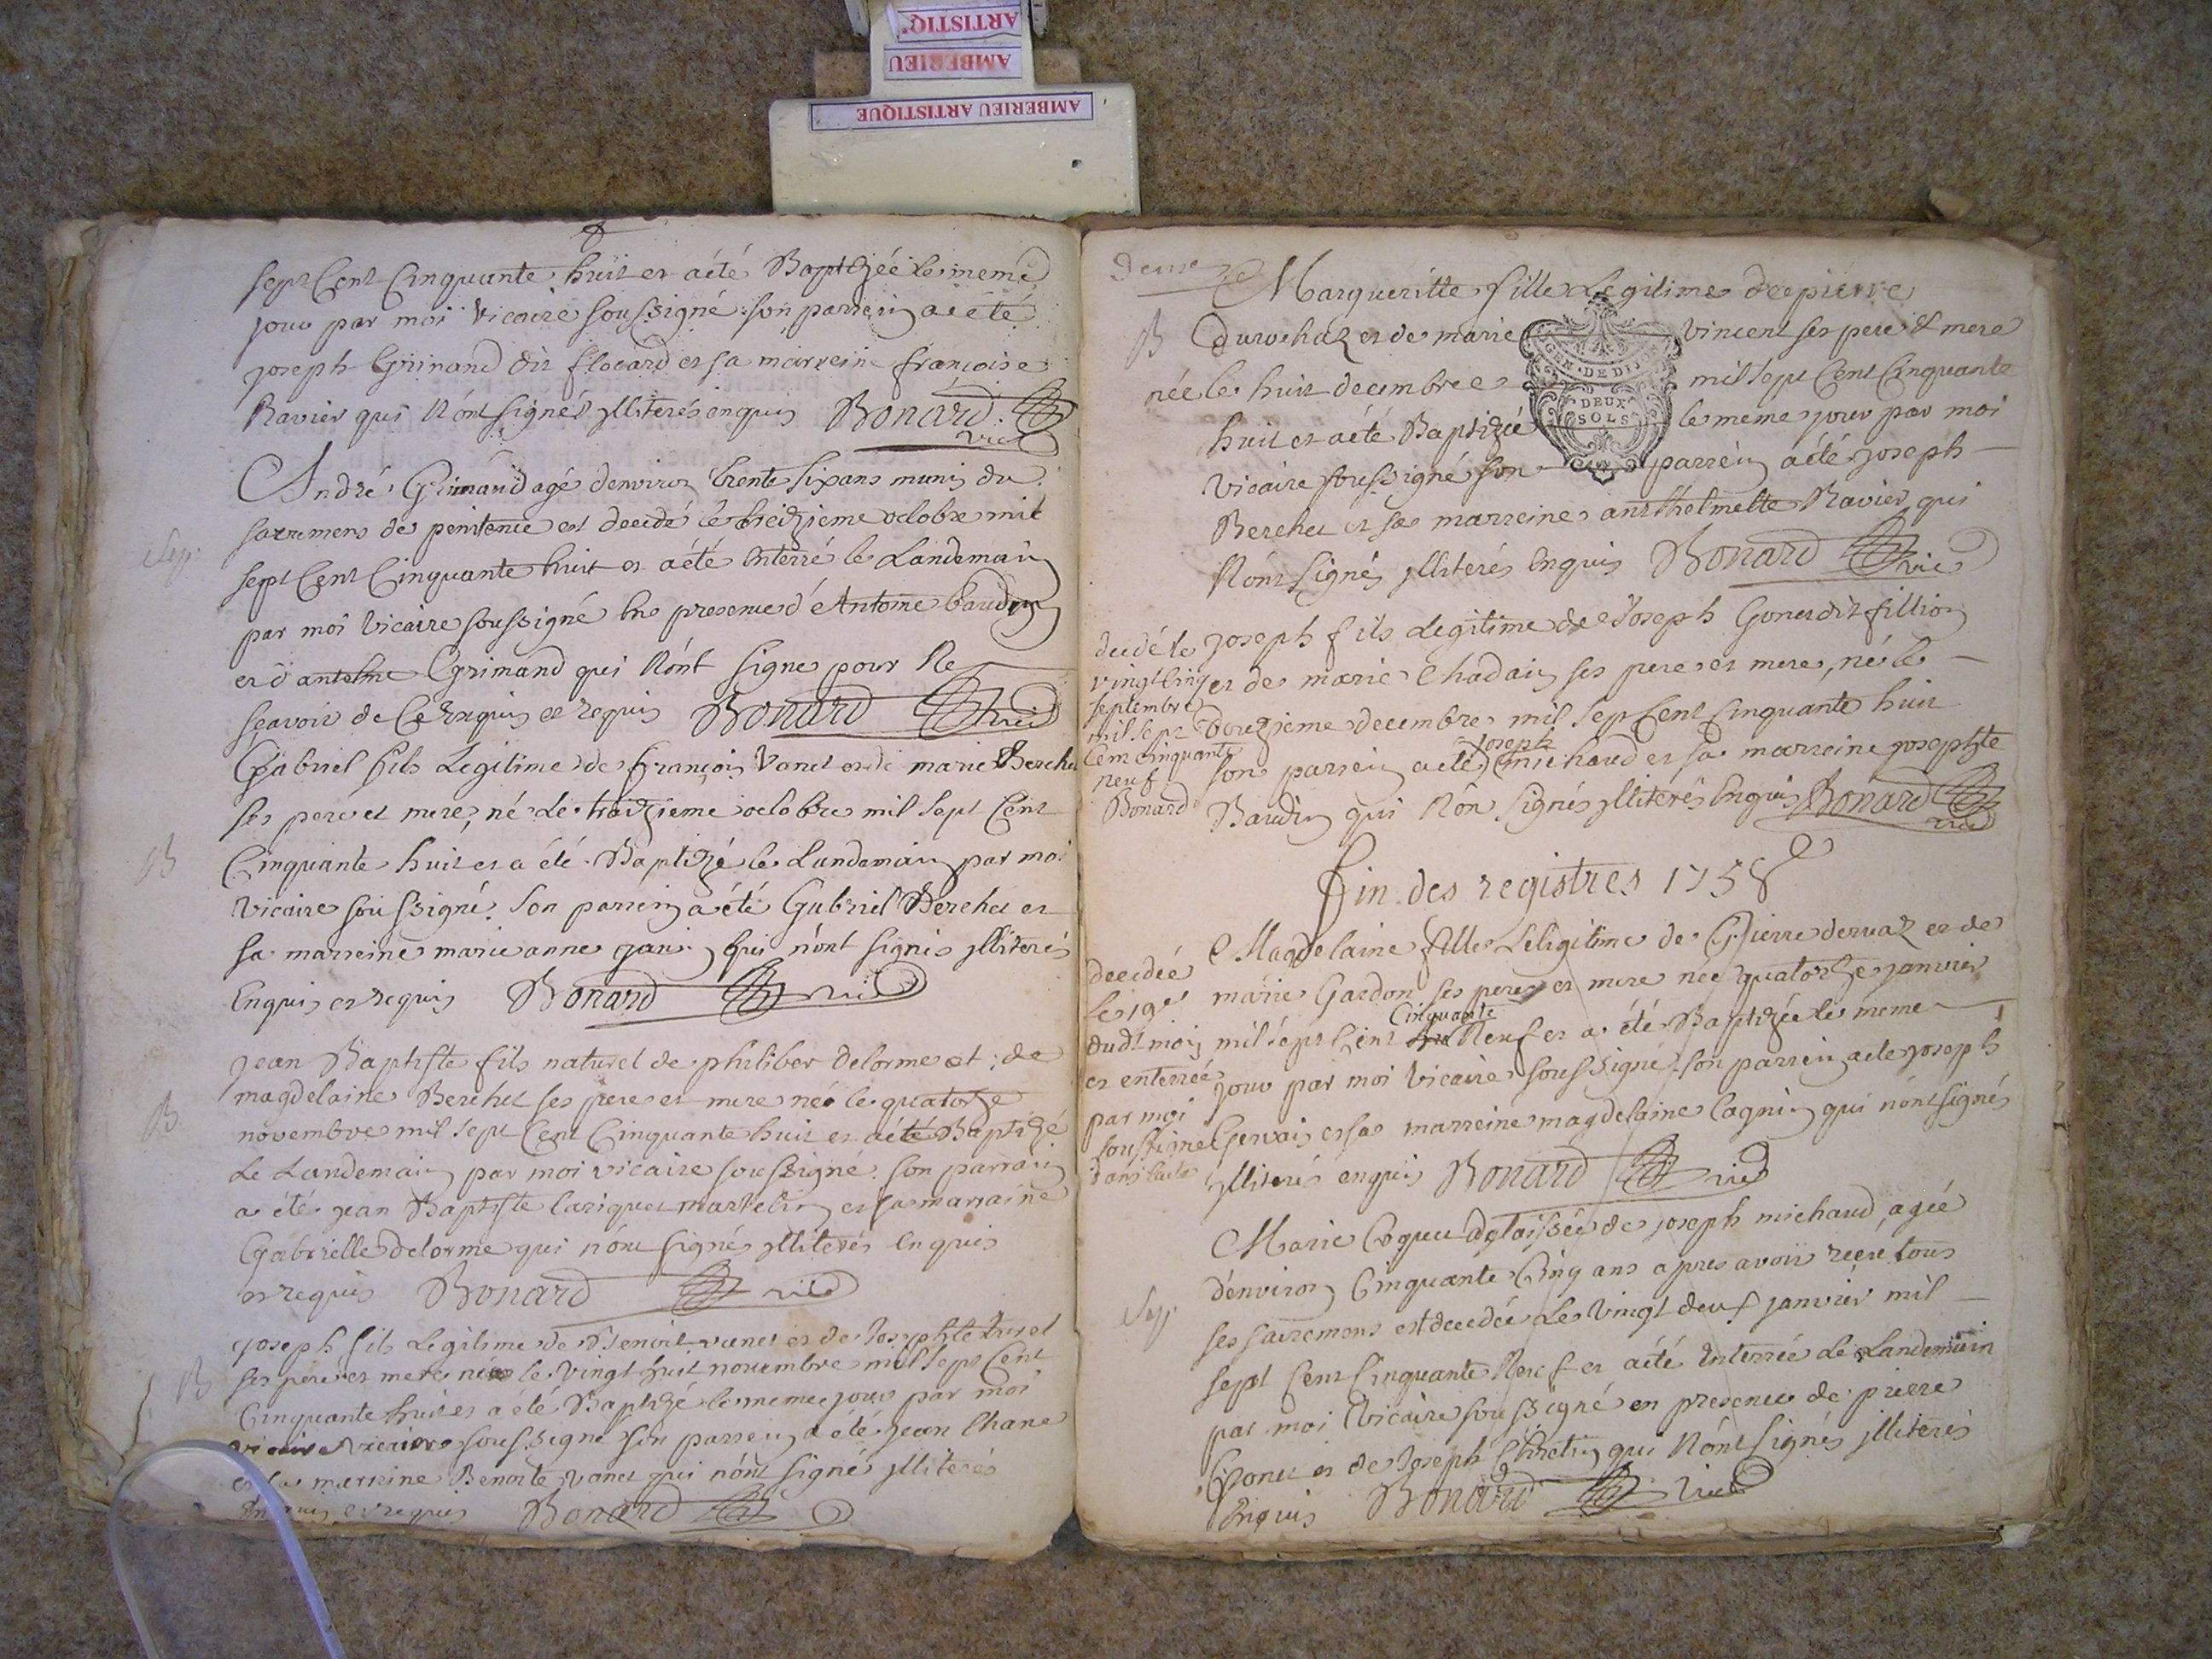 ARTISTIQ'
AMBERIEU
AMBERIEU ARTISTIQUE
sept Cent Cinquante huit et a été Baptizée le meme
jour par moi vicaire soussigné son parrein a été
joseph Grimand dit flocard et sa marreine françoise
Ravier qui n'ont signés jlliterés enquis Bonard vic
André Grimand agé d'environ trente six ans munis du
sacremens de penitence est decedé le treizieme octobre mil
Sep.
sept Cent Cinquante huit et a été Enterré le Landemain
par moi vicaire soussigné En presence d'Antoine baudin
et d'antelme Grimand qui n'ont signe pour ne
sçavoir de ce Enquis et requis Bonard vic
Gabriel fils Legitime de françois Vanet et de marie Berchet
ses pere et mere, né le traizieme octobre mil sept Cent
B
Cinquante huit et a été Baptizé le Landemain par moi
vicaire soussigné. son parrein a été Gabriel Berchet et
sa marreine marie anne qui n'ont signés jlliterés
Enquis et requis Bonard vic
jean Baptiste fils naturel de philiber delorme et de
magdelaine Berchet ses pere et mere né le quatorze
B
novembre mil sept Cent Cinquante huit et a été Baptizé
Le Landemain par moi vicaire soussigné. son parrain
a été jean Baptiste martelin et sa marraine
Gabrielle delorme qui n'ont signés jlliterés Enquis
et requis Bonard vic
joseph fils Legitime de Benoit vanet et de Josephte
ses pere et mere né le vingt huit novembre mil sept Cent
B
Cinquante huit et a été Baptizé le meme jour par moi
vicaire soussigné son parrein a été jean
et sa marreine Benoite vanet qui n'ont signé jlliterés
et requis Bonard
Margueritte fille Legitime de pierre
B
durochaz et de marie vincent ses pere et mere
GEN. DE DIJON
DEUX
SOLS
née le huit decembre mil sept Cent Cinquante
huit et a été Baptizée le meme jour par moi
vicaire soussigné son parrein a été joseph
Berchet et sa marreine anthelmette Ravier qui
n'ont signés jlliterés Enquis Bonard vic
decedé le
vingt cinq
septembre
mil sept
Cent cinquante
neuf
Bonard
joseph fils Legitime de Joseph Gonet dit fillion
et de marie Chadain ses pere et mere, né le
douzieme decembre mil sept Cent Cinquante huit
son parrein a été joseph michaud et sa marreine josephte
Baudin qui n'on signés jlliterés Enquis Bonard vic
Fin des registres 1758
decedée
le 19e
dudt mois
et enterrée
par moi
soussigné
Magdelaine fille Leligitime de Pierre dervaz et de
marie Gardon ses pere et mere née quatorze janvier
mil sept Cent Cinquante Neuf et a été Baptizée le meme
jour par moi vicaire soussigné son parrein a ete joseph
Gervais et sa marreine magdelaine Cagnin qui n'ont signés
jlliterés enquis Bonard vic
Marie delaissée de joseph michaud, agée
d'environ Cinquante Cinq ans apres avoir recu tous
Sep.
ses sacremens est decedée Le vingt deux janvier mil
sept Cent Cinquante Neuf et a été Enterrée Le Landemain
par moi vicaire soussigné en presence de pierre
et de Joseph Chretin qui n'ont signés jlliterés
Enquis Bonard vic